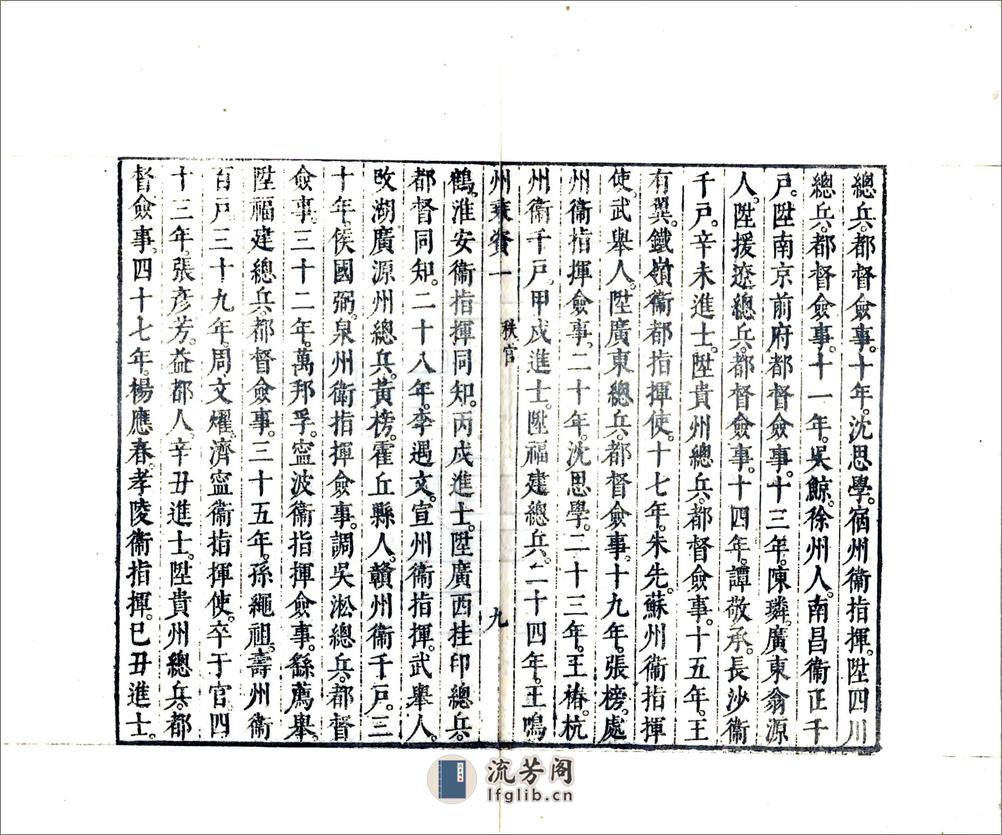 總兵。都督僉事。十年。沈思學。宿州衞指揮。陞四川
總兵。都督僉事。十一年。吳鯨。徐州人。南昌衞正千
戶。陞南京前府都督僉事。十三年。陳璘。廣東翁源
人。陞援遼總兵。都督僉事。十四年。譚敬承。長沙衞
千戶。辛未進士。陞貴州總兵。都督僉事。十五年。王
有翼。鐵嶺衞都指揮使。十七年。朱先。蘇州衞指揮
使。武舉人。陞廣東總兵。都督僉事。十九年。張榜。處
州衞指揮僉事。二十年。沈思學。二十三年。王椿。杭
州衞千戶。甲戌進士。陞福建總兵。二十四年。王鳴
州乘資一 秩官 九
鶴。淮安衞指揮同知。丙戌進士。陞廣西挂印總兵。
都督同知。二十八年。李遇文。宣州衞指揮。武舉人。
改湖廣源州總兵。黃榜。霍丘縣人。贛州衞千戶。三
十年。侯國弼。泉州衞指揮僉事。調吳淞總兵。都督
僉事。三十二年。萬邦孚。寧波衞指揮僉事。繇薦舉
陞福建總兵。都督僉事。三十五年。孫繩祖。壽州衞
百戶。三十九年。周文耀。濟寧衞指揮使。卒于官。四
十三年。張彥芳。益都人。辛丑進士。陞貴州總兵。都
督僉事。四十七年。楊應春。孝陵衞指揮。巳丑進士。
流芳阁
lfglib.cn